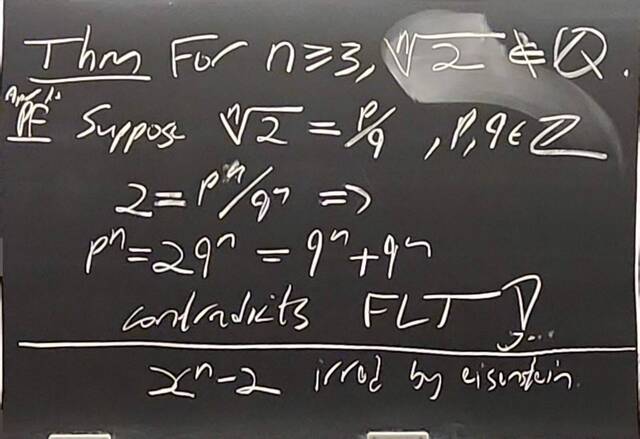 Thm For n≥3, ⁿ√2 ∉ ℚ.
Pf Suppose ⁿ√2 = p/q , p,q ∈ ℤ
2 = pⁿ/qⁿ ⇒
pⁿ = 2qⁿ = qⁿ + qⁿ
contradicts FLT
xⁿ-2 irred by eisenstein.